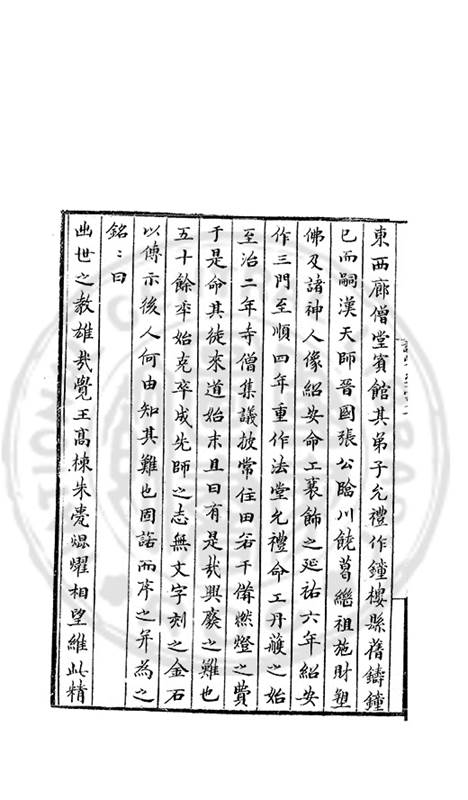 東西廊僧堂賓館其弟子允禮作鐘樓縣舊鑄鐘
已而嗣漢天師晉國張公臨川饒葛繼祖施財塑
佛及諸神人像紹安命工裝飾之延祐六年紹安
作三門至順四年重作法堂允禮命工丹雘之始
至治二年寺僧集議撥常住田若干備燃燈之費
于是命其徒來道始末且曰有是哉興廢之難也
五十餘年始克卒成先師之志無文字刻之金石
以傳示後人何由知其難也固諾而序之并為之
銘:曰
幽世之教雄哉覺王高棟朱甍焜耀相望維此精